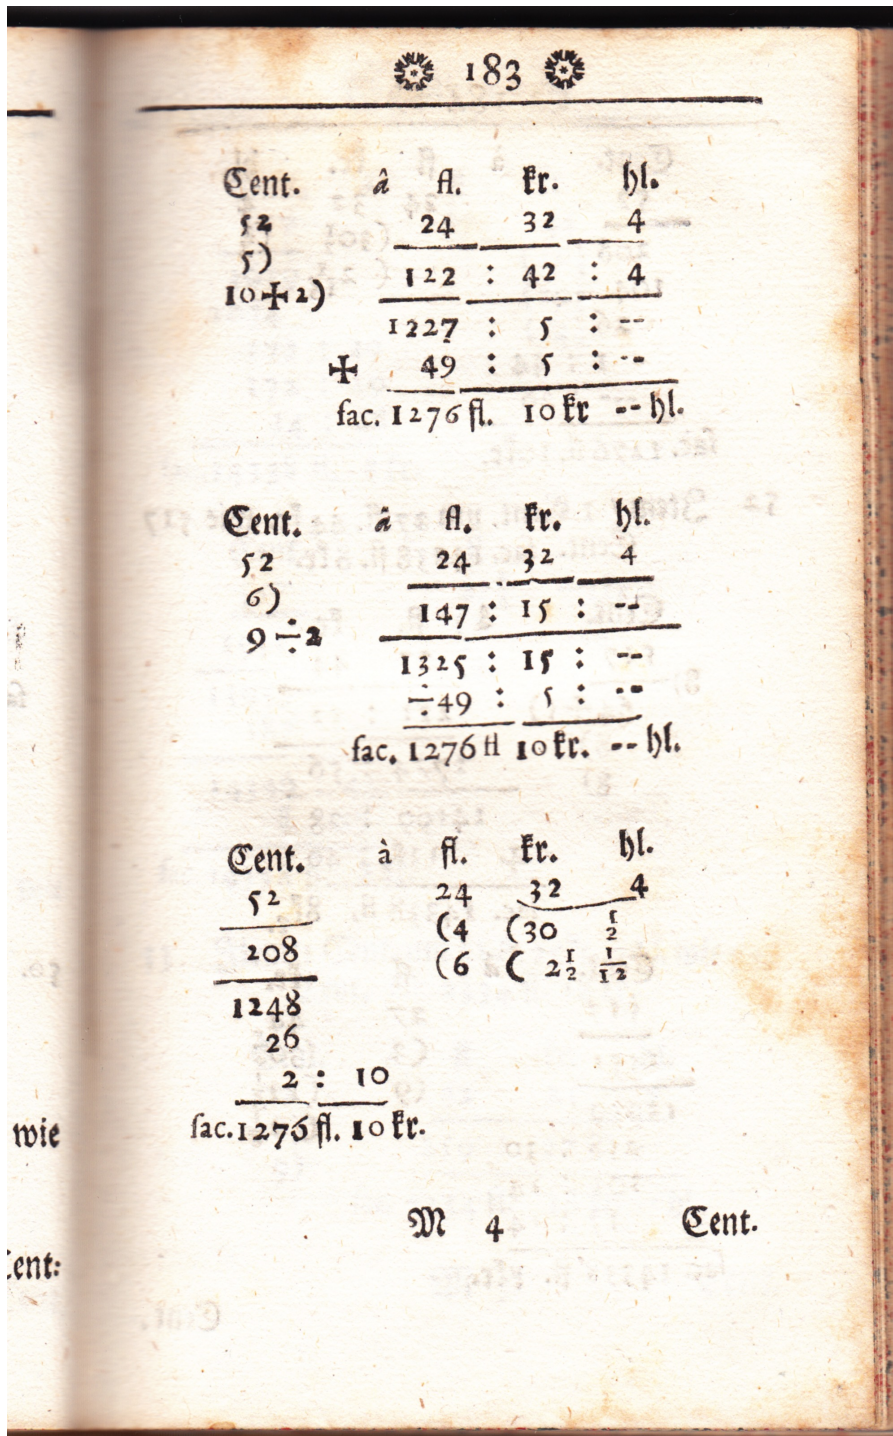 183
Cent. â fl. kr. hl.
52 24 32 4
5)
122 : 42 : 4
10 ✠ 2)
1227 : 5 : --
✠ 49 : 5 : --
fac. 1276 fl. 10 kr -- hl.
Cent. â fl. kr. hl.
52 24 32 4
6)
147 : 15 : --
9 ÷ 2
1325 : 15 : --
÷ 49 : 5 : --
fac. 1276 fl 10 kr. -- hl.
Cent. à fl. kr. hl.
52 24 32 4
(4 (30 1/2
208 (6 ( 2 1/2 1/12
1248
26
2 : 10
fac. 1276 fl. 10 kr.
wie
M 4 Cent.
Cent: